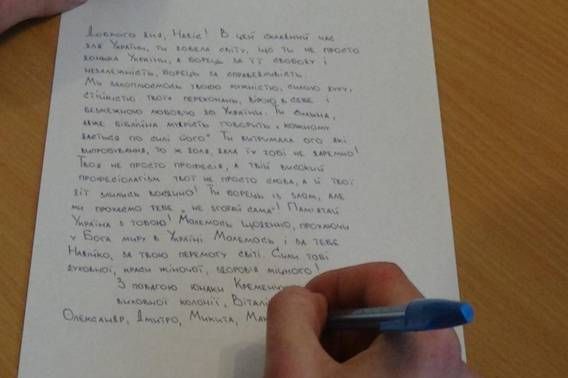 Доброго дня, Надіє! В цей складний час
для України, ти довела світу, що ти не просто
донька України, а борець за її свободу і
незалежність, борець за справедливість.
Ми захоплюємось твоєю мужністю, силою духу,
стійкістю твоїх переконань, вірою в себе і
безмежною любовью до України. Ти сильна,
адже біблійна мудрість говорить, "кожному
дається по силі його". Ти витримала ого які
випробування, то ж доля, дала їх тобі не даремно!
Твоя не просто професія, а твій високий
професіоналізм твої не просто слова, а й твої
дії злились воєдино! Ти борець із злом, але
ми прохаємо тебе "не згорай сама"! Пам'ятай
Україна з тобою! Молемось щоденно, прохаючи
у Бога миру в Україні Молемось і за тебе
Надійко, за твою перемогу світі. Сили тобі
духовної, краси жіночої, здоров'я міцного!
З повагою юнаки
виховної колонії,
Олександр, Дмитро, Микита,